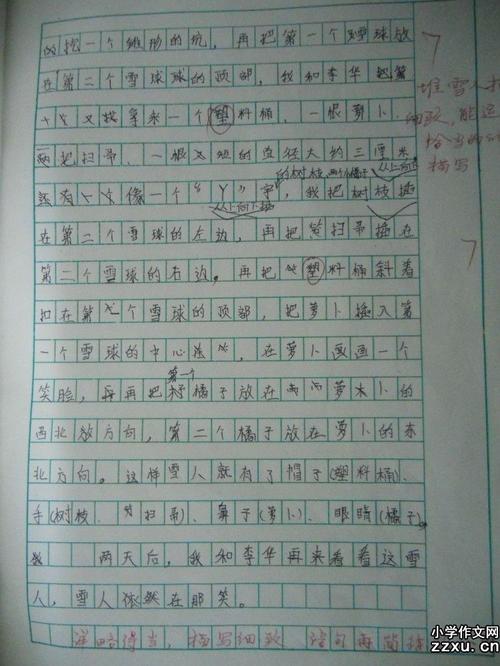 的挖一个锥形的坑，再把第一个雪球放
在第二个雪球球的顶部，我和李华
又找来一个塑料桶、一根萝卜、
两把扫帚、一根的直径大约三厘米
的树枝、两个橘子
还有像一个“丫”字，我把树枝插
在第二个雪球的左边，再把扫帚插在
第二个雪球的右边。再把塑料桶斜着
扣在第个雪球的顶部，把萝卜插入第
一个雪球的中心，在萝卜画一个
第一个
笑脸，再把橘子放在萝卜的
西北方向，第二个橘子放在萝卜的东
北方向。这样雪人就有了帽子(塑料桶)、
手(树枝、扫帚)、鼻子(萝卜)、眼睛(橘子)。
两天后，我和李华再来看看这雪
人，雪人依然在那笑。
详略得当，描写细致
堆雪人
细致，能运
恰当的
描写
小学作文网
zzxu.cn